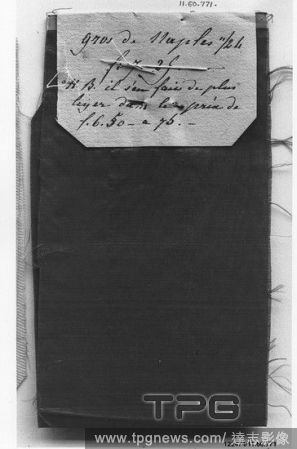 11.60.771.
gros de Naples 11/24
f. 7-25
N B. il s'en fait de plus
leger dans les prix de
f. 6.50 - a 75. -
TPG
www.tpgnews.com/達志影像